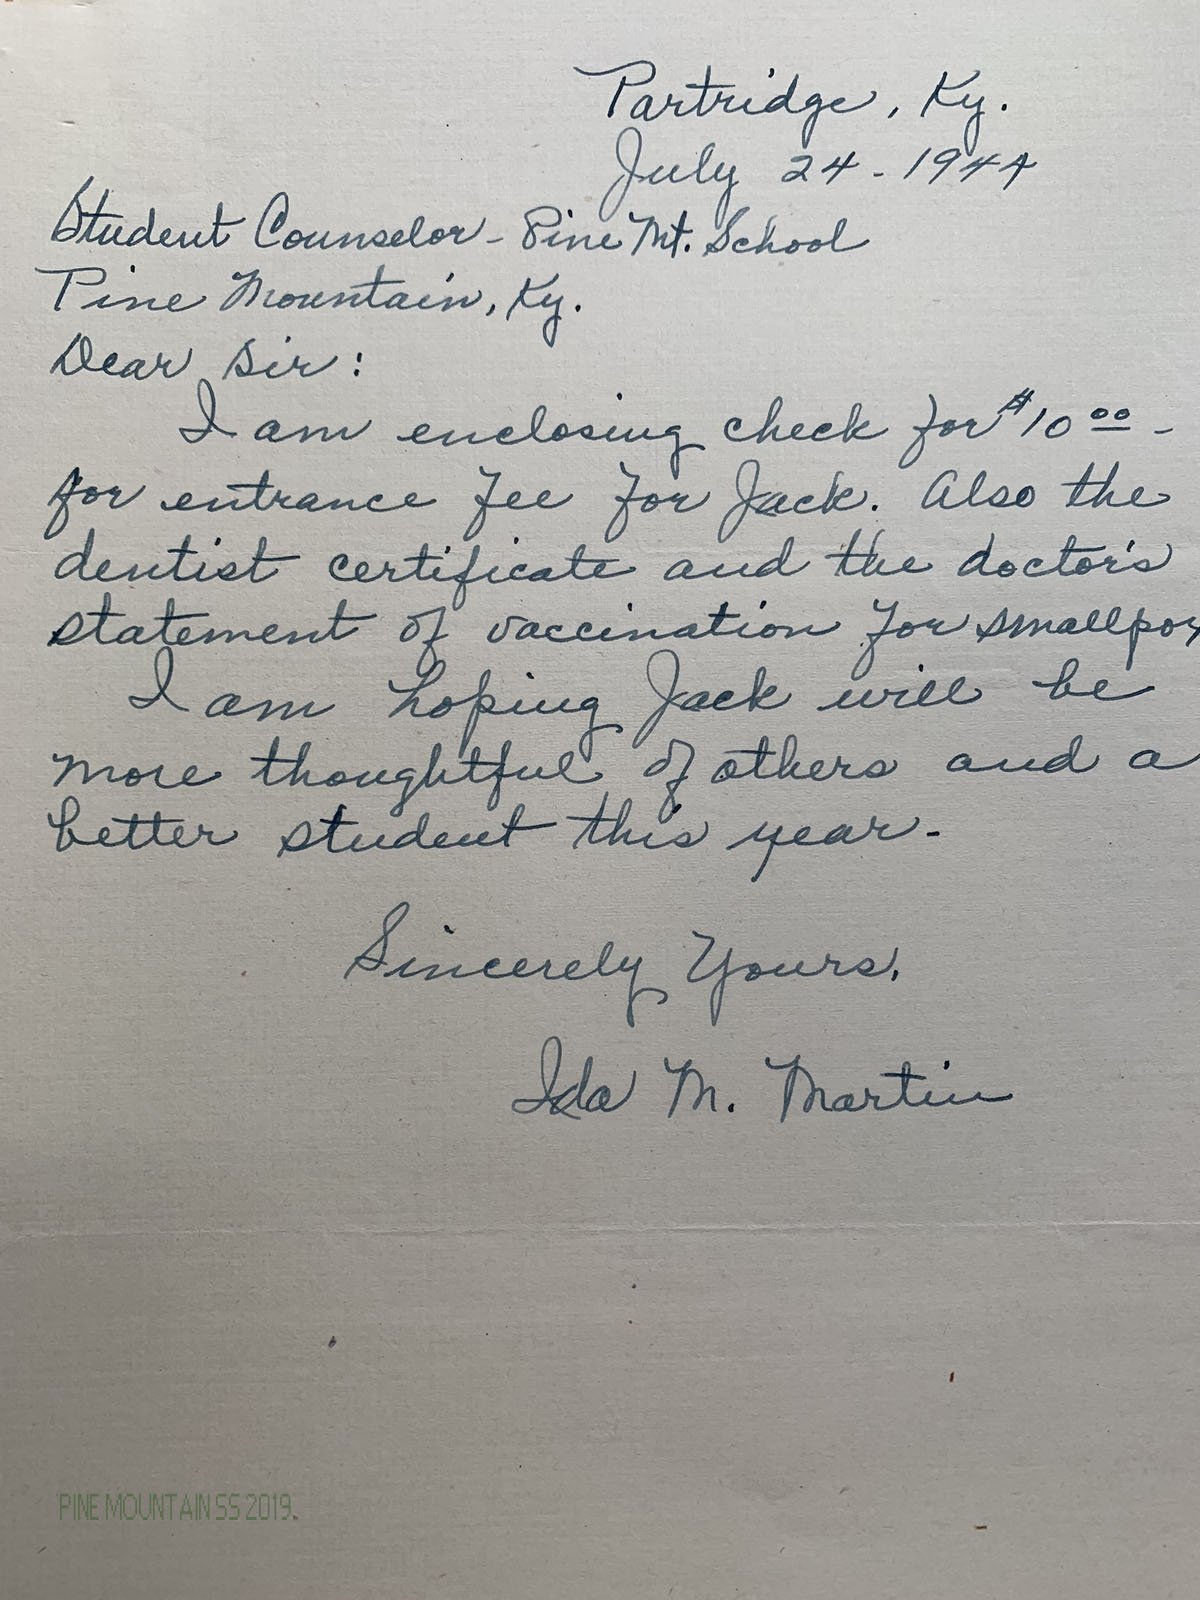 Partridge, Ky.
July 24 - 1944
Student Counselor - Pine Mt. School
Pine Mountain, Ky.
Dear Sir:
I am enclosing check for $10 00 -
for entrance fee for Jack. Also the
dentist certificate and the doctor's
statement of vaccination for smallpox
I am hoping Jack will be
more thoughtful of others and a
better student this year -
Sincerely Yours,
Ida M. Martin
PINE MOUNTAIN SS 2019.